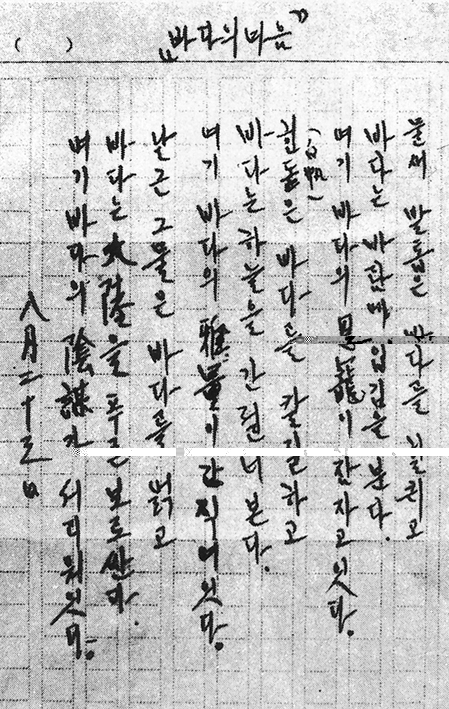 “바다의 마음”
( )
물새 발톱은 바다를 할퀴고
바다는 바람에 입김을 분다.
여기 바다의 恩寵이 잠자고 잇다.
(白帆)
힌돛은 바다를 칼질하고
바다는 하늘을 간질너본다.
여기 바다의 雅量이 간직여잇다.
날근 그물은 바다를 얽고
바다는 大陸을 푸른 보로싼다.
여기 바다의 陰謀가 서리워잇다.
八月二十三日